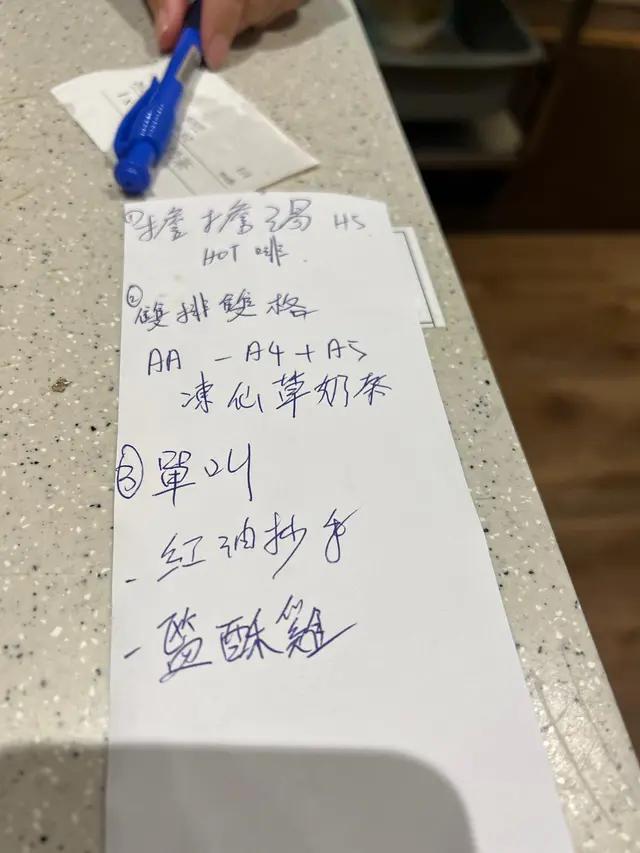 ① 擔擔湯 H5
HOT 啡
② 雙排雙格
AA - A4 + A5
凍仙草奶茶
③ 單叫
- 紅油抄手
- 鹽酥雞